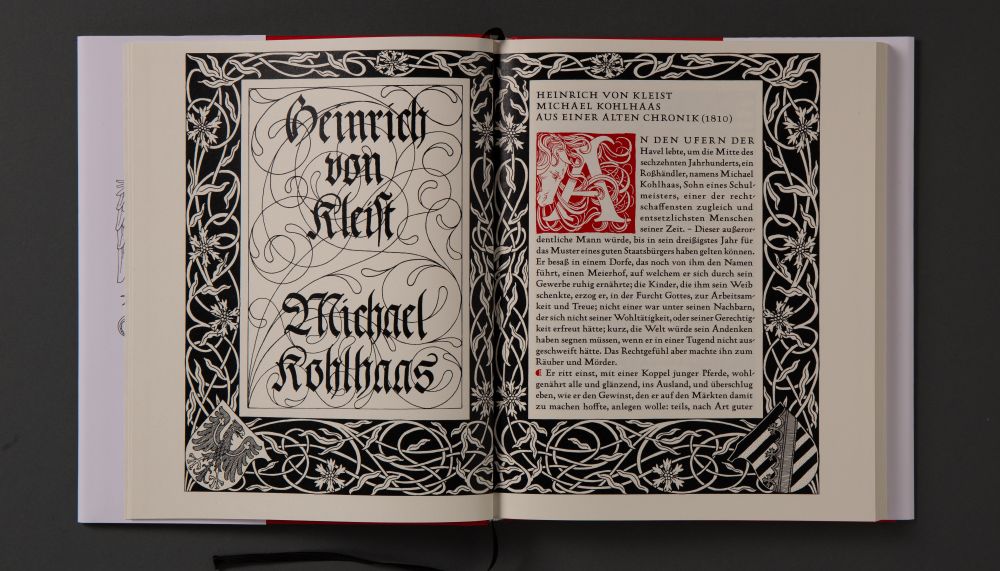 Heinrich
von
Kleist
Michael
Kohlhaas
HEINRICH VON KLEIST
MICHAEL KOHLHAAS
AUS EINER ALTEN CHRONIK (1810)
AN DEN UFERN DER
Havel lebte, um die Mitte des
sechzehnten Jahrhunderts, ein
Roßhändler, namens Michael
Kohlhaas, Sohn eines Schul-
meisters, einer der recht-
schaffensten zugleich und
entsetzlichsten Menschen
seiner Zeit. – Dieser außeror-
dentliche Mann würde, bis in sein dreißigstes Jahr für
das Muster eines guten Staatsbürgers haben gelten können.
Er besaß in einem Dorfe, das noch von ihm den Namen
führt, einen Meierhof, auf welchem er sich durch sein
Gewerbe ruhig ernährte; die Kinder, die ihm sein Weib
schenkte, erzog er, in der Furcht Gottes, zur Arbeitsam-
keit und Treue; nicht einer war unter seinen Nachbarn,
der sich nicht seiner Wohltätigkeit, oder seiner Gerechtig-
keit erfreut hätte; kurz, die Welt würde sein Andenken
haben segnen müssen, wenn er in einer Tugend nicht aus-
geschweift hätte. Das Rechtgefühl aber machte ihn zum
Räuber und Mörder.
Er ritt einst, mit einer Koppel junger Pferde, wohl-
genährt alle und glänzend, ins Ausland, und überschlug
eben, wie er den Gewinst, den er auf den Märkten damit
zu machen hoffte, anlegen wolle: teils, nach Art guter